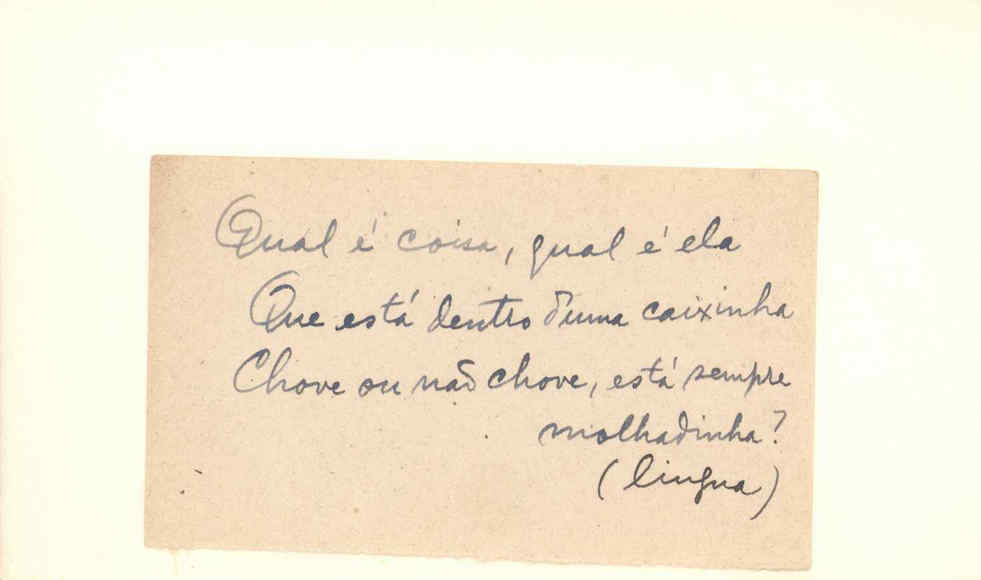 Qual é coisa, qual é ela
Que está dentro d'uma caixinha
Chove ou não chove, está sempre
molhadinha?
(lingua)